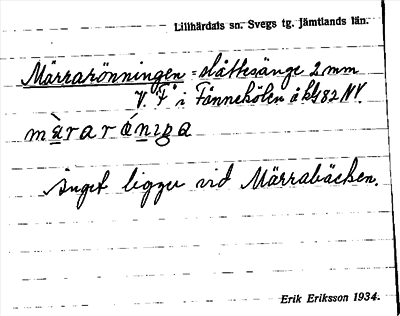 Lillhärdals sn. Svegs tg. Jämtlands län.
Märrarönningen = slåttesänge 2 mm
V. "F" i Fånnekölen å kbl 82 NV.
mὰrarǿniŋa
Änget ligger vid Märrabäcken.
Erik Eriksson 1934.